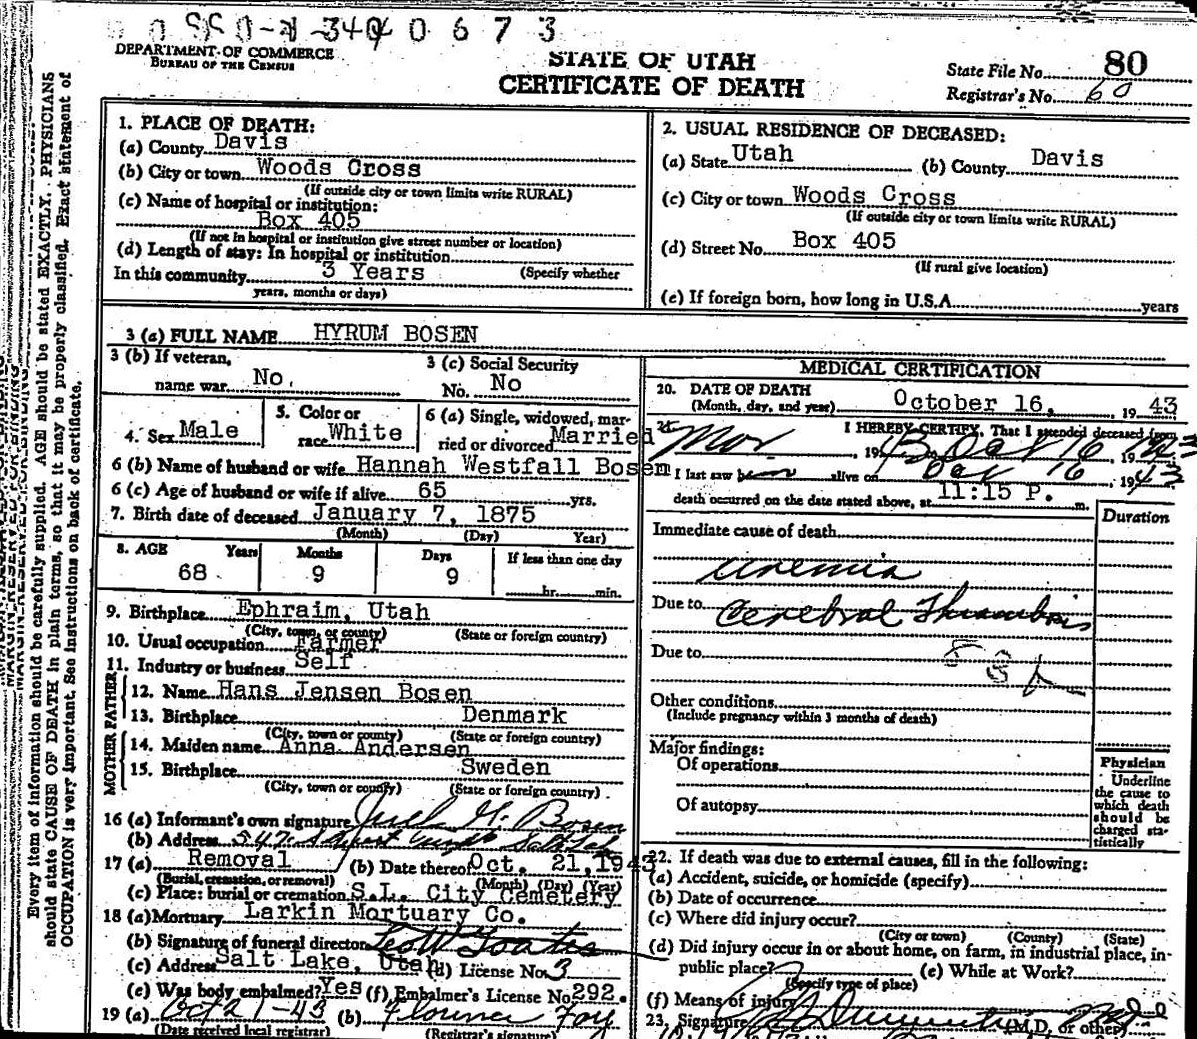 340 0 6 7 3
DEPARTMENT OF COMMERCE
BUREAU OF THE CENSUS
STATE OF UTAH
CERTIFICATE OF DEATH
State File No. 80
Registrar's No. 60
Every item of information should be carefully supplied. AGE should be stated EXACTLY. PHYSICIANS
should state CAUSE OF DEATH in plain terms, so that it may be properly classified. Exact statement of
OCCUPATION is very important. See instructions on back of certificate.
1. PLACE OF DEATH:
(a) County Davis
(b) City or town Woods Cross
(If outside city or town limits write RURAL)
(c) Name of hospital or institution:
Box 405
(If not in hospital or institution give street number or location)
(d) Length of stay: In hospital or institution
In this community 3 Years (Specify whether
years, months or days)
2. USUAL RESIDENCE OF DECEASED:
(a) State Utah (b) County Davis
(c) City or town Woods Cross
(If outside city or town limits write RURAL)
(d) Street No. Box 405
(If rural give location)
(e) If foreign born, how long in U.S.A. years
3 (a) FULL NAME HYRUM BOSEN
3 (b) If veteran,
name war No.
3 (c) Social Security
No. No
4. Sex Male
5. Color or
race White
6 (a) Single, widowed, mar-
ried or divorced Married
6 (b) Name of husband or wife Hannah Westfall Bosen
6 (c) Age of husband or wife if alive 65 yrs.
7. Birth date of deceased January 7, 1875
(Month) (Day) Year)
8. AGE Years Months Days If less than one day
68 9 9 hr. min.
9. Birthplace Ephraim, Utah
(City, town, or county) (State or foreign country)
10. Usual occupation Farmer
11. Industry or business Self
FATHER
12. Name Hans Jensen Bosen
13. Birthplace Denmark
(City, town or county) (State or foreign country)
MOTHER
14. Maiden name Anna Andersen
15. Birthplace Sweden
(City, town or county) (State or foreign country)
16 (a) Informant's own signature H. Bosen
(b) Address 547
17 (a) Removal (b) Date thereof Oct. 21, 1943
(Burial, cremation, or removal) (Month) (Day) (Year)
(c) Place: burial or cremation S.L. City Cemetery
18 (a) Mortuary Larkin Mortuary Co.
(b) Signature of funeral director
(c) Address Salt Lake, Utah (d) License No. 3
(e) Was body embalmed? Yes (f) Embalmer's License No. 292.
19 (a) Oct 21-43 (b) Florence Foy
(Date received local registrar) (Registrar's signature)
MEDICAL CERTIFICATION
20. DATE OF DEATH
(Month, day, and year) October 16, 1943
21. I HEREBY CERTIFY, That I attended deceased from
Nov. , 19 Oct 16, 1943
I last saw him alive on Oct 16, 1943
death occurred on the date stated above, at 11:15 P. m.
Duration
Immediate cause of death
uremia
Due to Cerebral Thrombosis
Due to
Other conditions
(Include pregnancy within 3 months of death)
Major findings:
Of operations
Of autopsy
Physician
Underline
the cause to
which death
should be
charged sta-
tistically
22. If death was due to external causes, fill in the following:
(a) Accident, suicide, or homicide (specify)
(b) Date of occurrence
(c) Where did injury occur?
(City or town) (County) (State)
(d) Did injury occur in or about home, on farm, in industrial place, in-
public place? (e) While at Work?
(Specify type of place)
(f) Means of injury
23. Signature (M.D. or other)